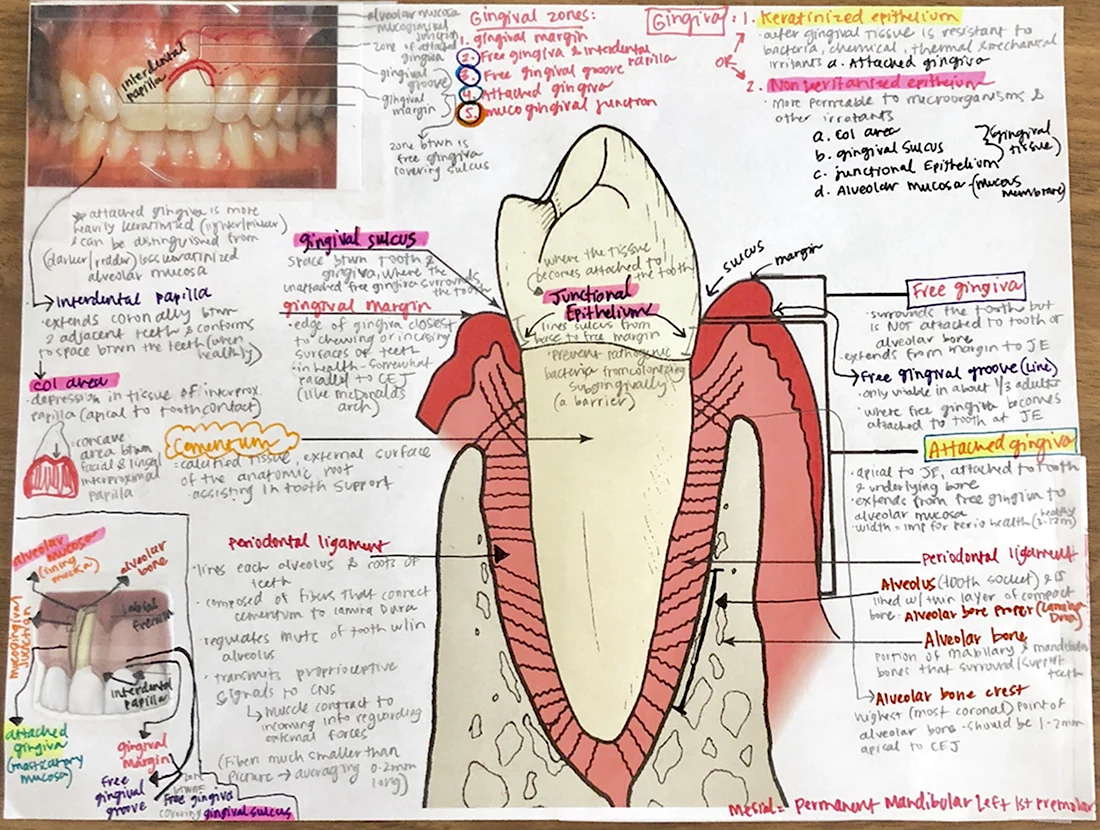 alveolar mucosa
mucogingival junction
zone of attached gingiva
gingival groove
gingival margin
interdental papilla
Gingival zones:
1. gingival margin
2. Free gingiva & interdental papilla
3. Free gingival groove
4. Attached gingiva
5. mucogingival junction
zone btwn is
free gingiva
covering sulcus
Gingiva:
OR
1. Keratinized epithelium
- outer gingival tissue is resistant to
bacteria, chemical, thermal & mechanical
irritants
a. Attached gingiva
2. Non keritanized epitheium
• More permeable to microorganisms &
other irratants
a. Col area
b. gingival Sulcus
c. junctional Epithelium
(gingival tissue)
d. Alveolar mucosa - (mucus membrane)
attached gingiva is more
heavily keratinized (lighter/pinker)
& can be distinguished from
(darker/redder) less keratinized
alveolar mucosa
interdental papilla
- extends coronally btwn
2 adjacent teeth & conforms
to space btwn the teeth (when
healthy)
col area
- depression in tissue of interprox.
papilla (apical to tooth contact)
- concave
area btwn
facial & lingal
interproximal
papilla
gingival sulcus
space btwn tooth &
gingiva, where the
unattached free gingiva surrounds
the tooth
gingival margin
• edge of gingiva closest
to chewing or incising
surfaces of teeth
- in health - somewhat
parallel to CEJ
(like mcDonalds
arch)
Cementum
- calcified tissue, external surface
of the anatomic root
- assisting in tooth support
where the tissue
becomes attached to
the tooth
Junctional
Epithelium
lines sulcus from
base to free margin
• prevent pathogenic
bacteria from colonizing
subgingivally
(a barrier)
sucus
margin
Free gingiva
• surrounds the tooth but
is NOT attached to tooth or
alveolar bone
- extends from margin to JE
Free gingival groove (Line)
• only visible in about 1/3 adults
• where free gingiva becomes
attached to tooth at JE
Attached gingiva
• apical to JE, attached to tooth
& underlying bone
• extends from free gingiva to
alveolar mucosa
width = imp for perio health
periodontal ligament
• lines each alveolus & roots of
teeth
• composed of fibers that connect
cementum to lamina dura
• regulates mvtc of tooth w/in
alveolus
• transmits proprioceptive
signals to CNS
muscle contract to
incoming info reguarding
external forces
(Fibers much smaller than
picture → averaging 0.2mm
long)
periodontal ligament
Alveolus (tooth socket) & is
lined w/ thin layer of compact
bone = Alveolar bone proper (Lamina
Dura)
Alveolar bone
portion of maxillary & mandibular
bones that surround/support
teeth
Alveolar bone crest
highest (most coronal) point of
alveolar bone - should be 1-2mm
apical to CEJ
alveolar mucosa
(lining mucosa)
alveolar bone
mucogingival junction
labial frenum
interdental
papilla
attached
gingiva
(masticatory
mucosa)
gingival
margin
free
gingival
groove
free gingiva
covering gingival sulcus
Mesial = Permanent Mandibular Left 1st premolar